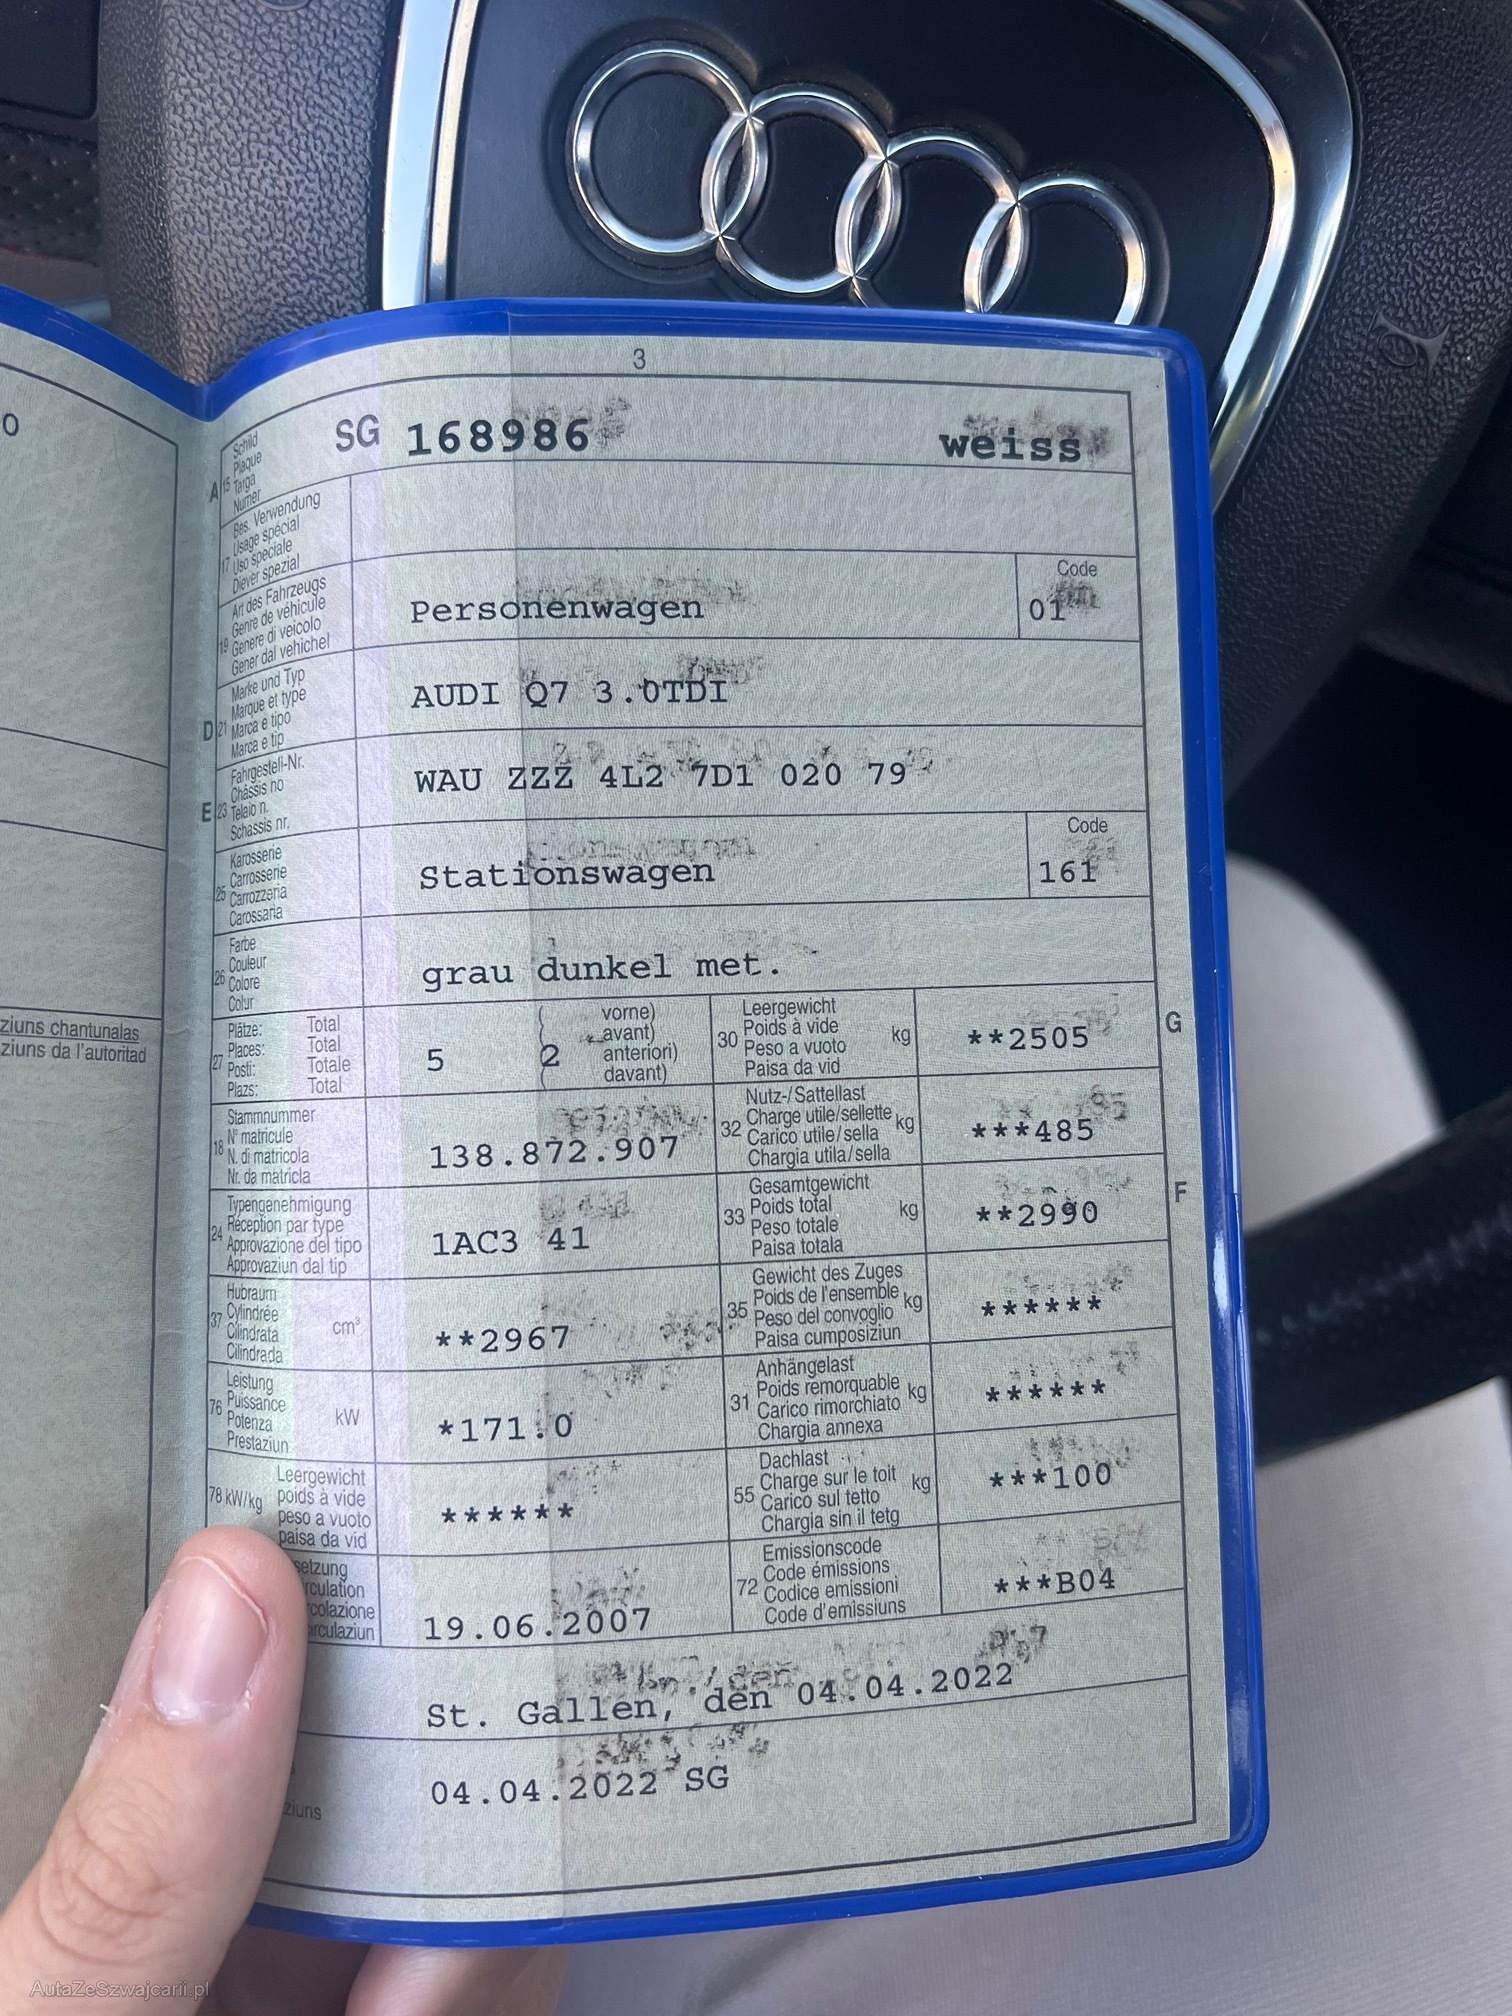 3
O
A 15 Schild
Plaque
Targa
Numer
SG 168986 weiss
17 Bes. Verwendung
Usage spécial
Uso speciale
Diever spezial
19 Art des Fahrzeugs
Genre de véhicule
Genere di veicolo
Gener dal vehichel
Personenwagen
Code
01
D 21 Marke und Typ
Marque et type
Marca e tipo
Marca e tip
AUDI Q7 3.0TDI
E 23 Fahrgestell-Nr.
Châssis no
Telaio n.
Schassis nr.
WAU ZZZ 4L2 7D1 020 79
25 Karosserie
Carrosserie
Carrozzeria
Carossaria
Stationswagen
Code
161
26 Farbe
Couleur
Colore
Colur
grau dunkel met.
ziuns chantunalas
ziuns da l'autoritad
27 Plätze: Total
Places: Total
Posti: Totale
Plazs: Total
5 2
vorne)
avant)
anteriori)
davant)
30 Leergewicht
Poids à vide kg
Peso a vuoto
Paisa da vid
**2505
G
18 Stammnummer
N° matricule
N. di matricola
Nr. da matricla
138.872.907
32 Nutz-/Sattellast
Charge utile/sellette kg
Carico utile/sella
Chargia utila/sella
***485
24 Typengenehmigung
Réception par type
Approvazione del tipo
Approvaziun dal tip
1AC3 41
33 Gesamtgewicht
Poids total kg
Peso totale
Paisa totala
**2990
F
37 Hubraum
Cylindrée
Cilindrata cm³
Cilindrada
**2967
35 Gewicht des Zuges
Poids de l'ensemble kg
Peso del convoglio
Paisa cumposiziun
******
76 Leistung
Puissance
Potenza kW
Prestaziun
*171.0
31 Anhängelast
Poids remorquable kg
Carico rimorchiato
Chargia annexa
******
78 kW/kg Leergewicht
poids à vide
peso a vuoto
paisa da vid
******
55 Dachlast
Charge sur le toit kg
Carico sul tetto
Chargia sin il tetg
***100
setzung
rculation
colazione
irculaziun
19.06.2007
72 Emissionscode
Code émissions
Codice emissioni
Code d'emissiuns
***B04
St. Gallen, den 04.04.2022
04.04.2022 SG
ziuns
AutaZeSzwajcarii.pl